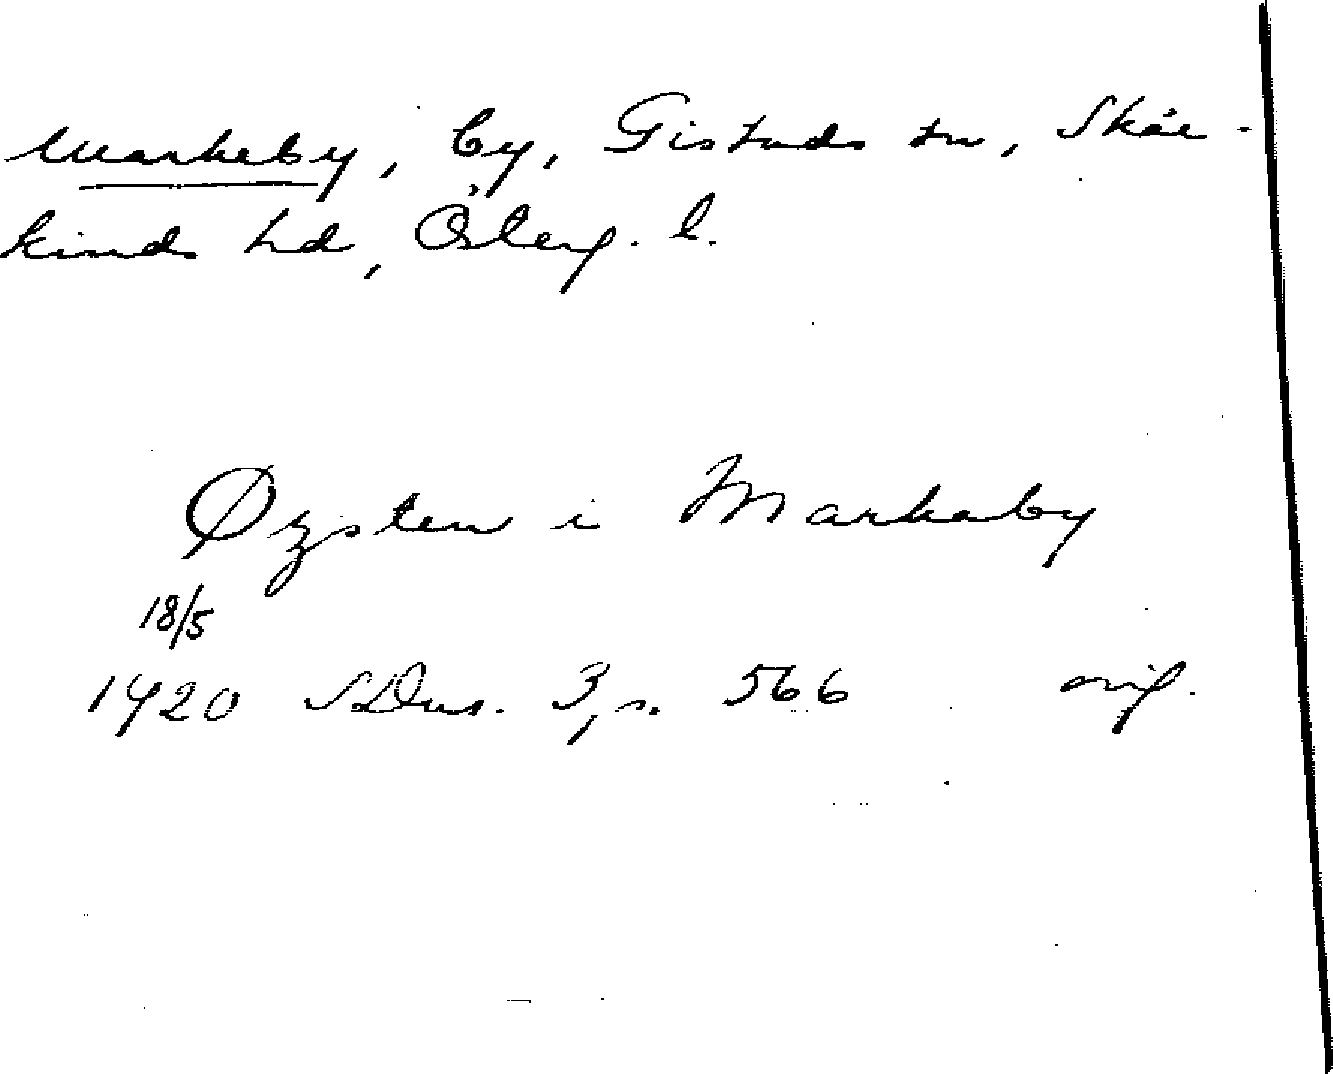 Markeby, by, Gistads sn, Skär-
kinds hd, Österg. l.
Øysten i Markaby
18/5
1420 SDns. 3, s. 566 orig.